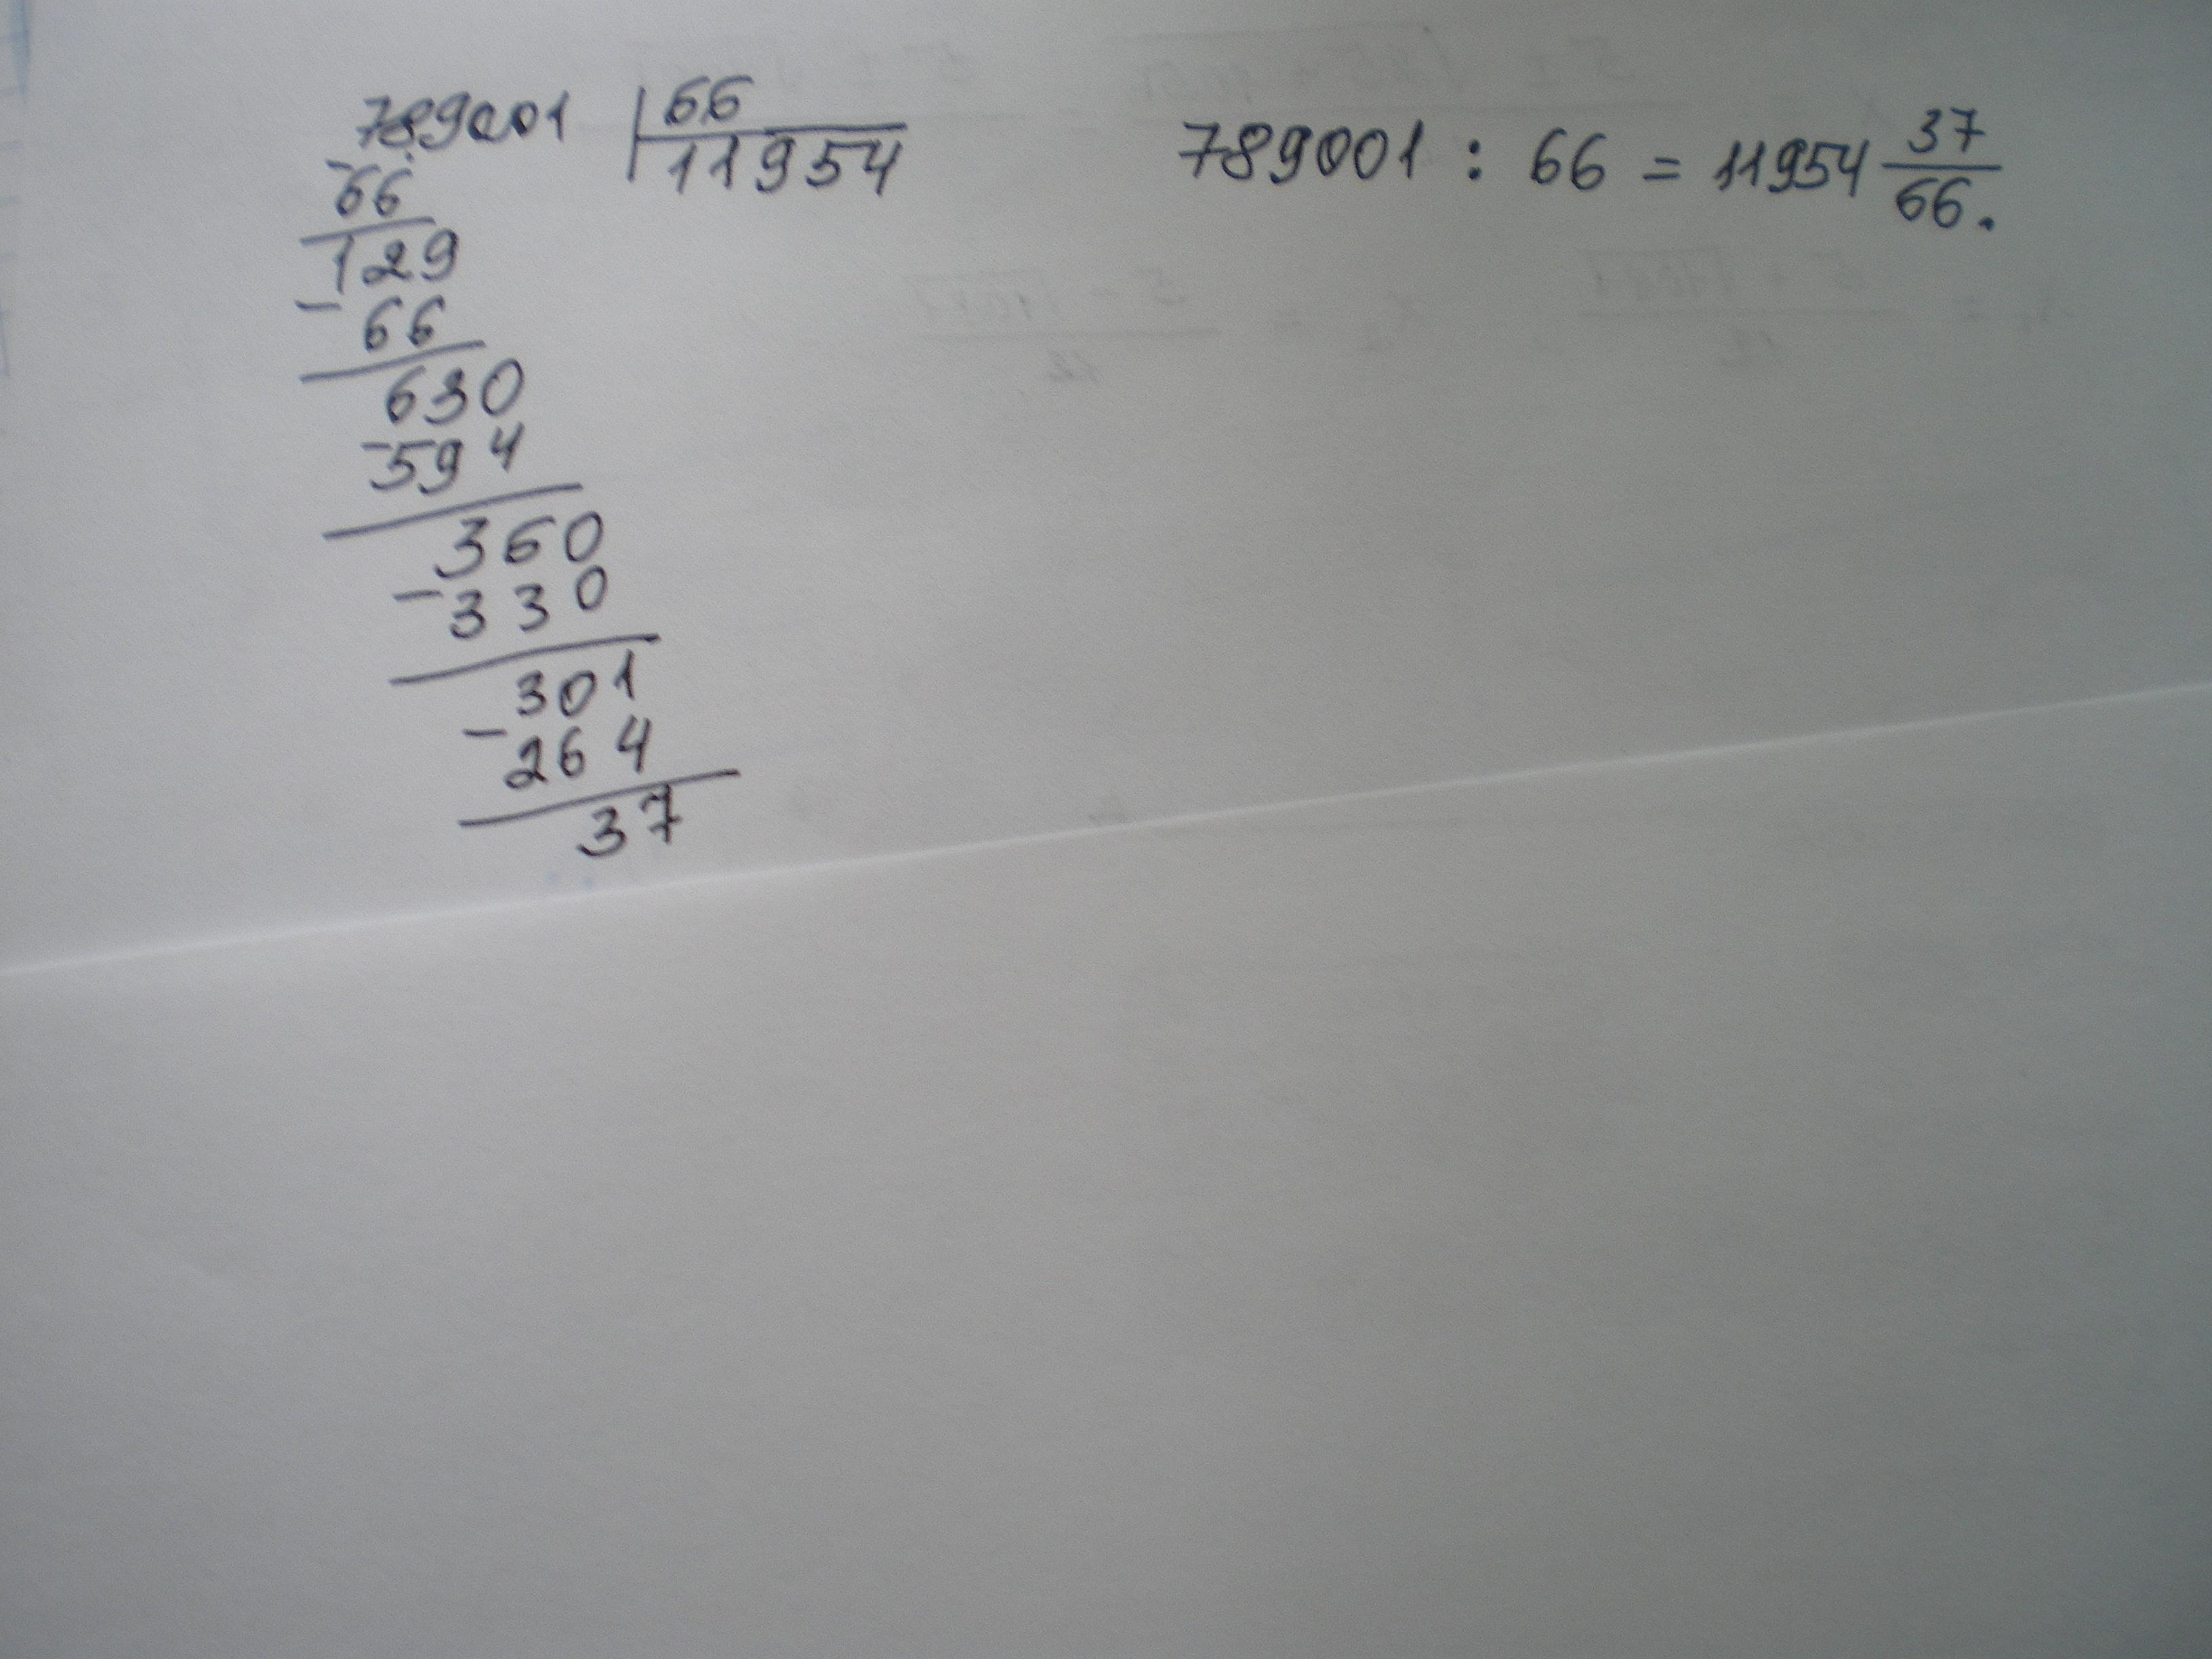 789001 | 66
- 66 11954
129
- 66
630
- 594
360
- 330
301
- 264
37
789001 : 66 = 11954 37/66.